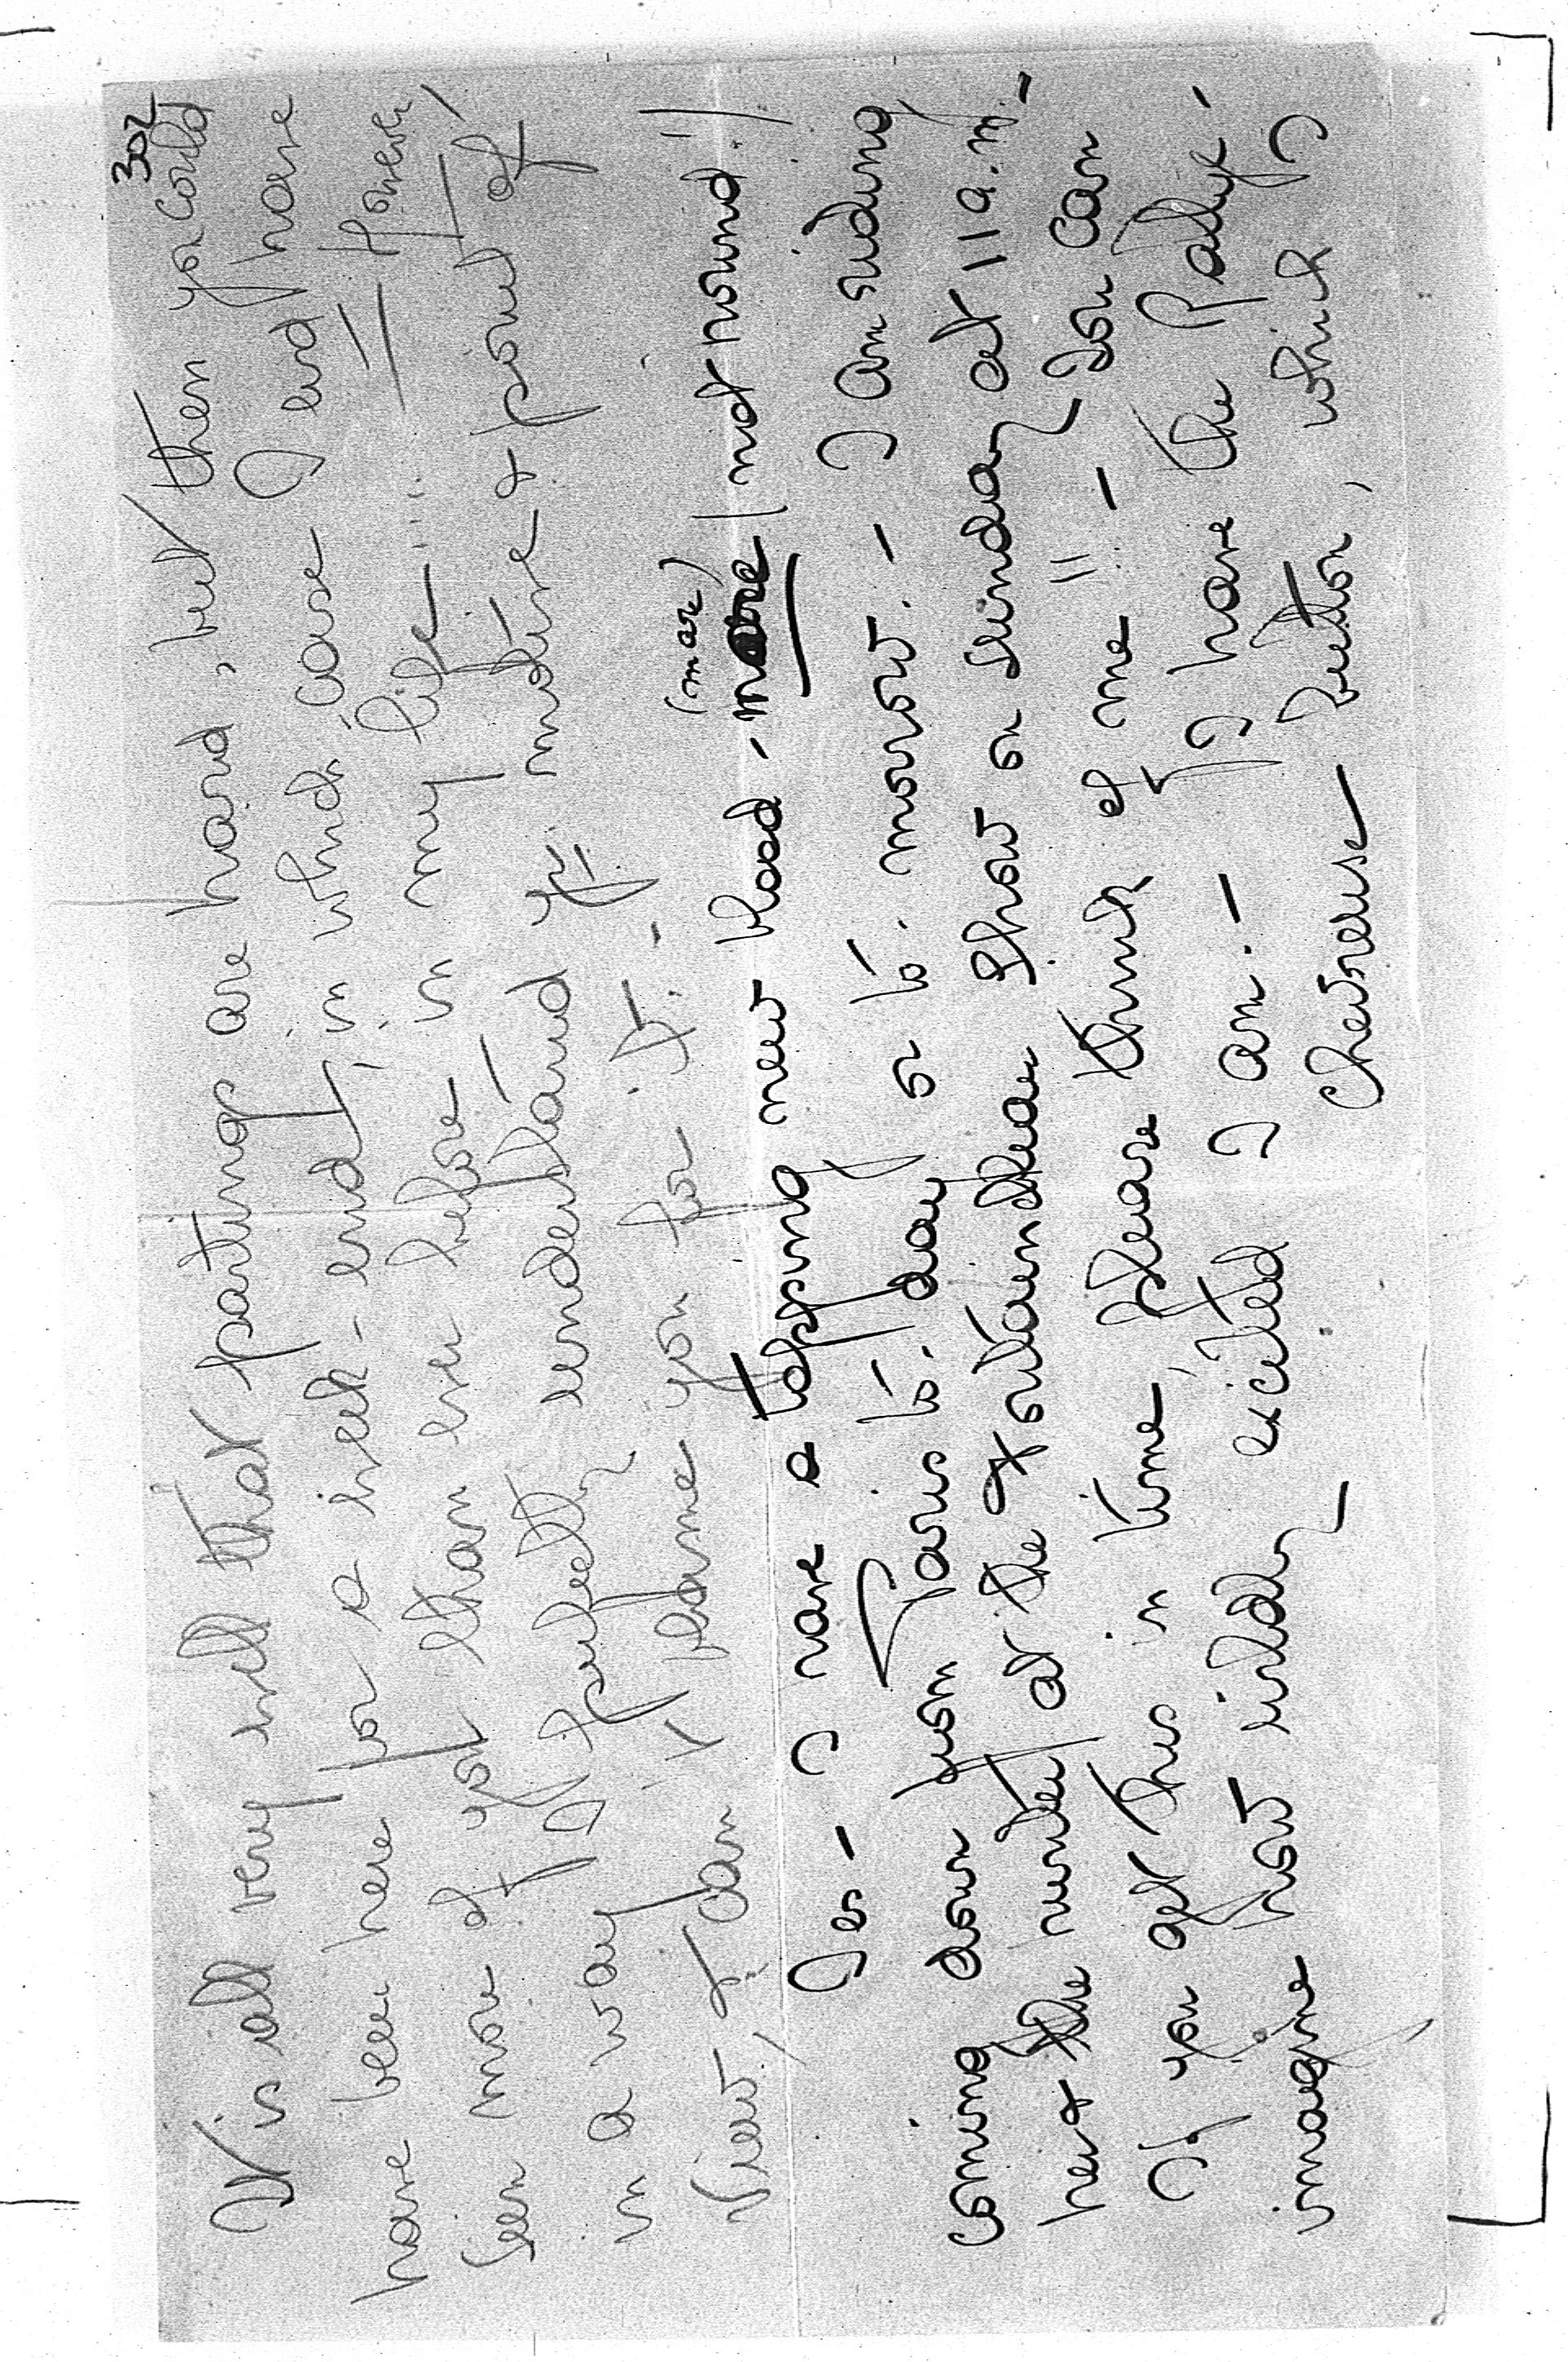 302
It is all very well that parting are hard, but then you could
have been here for a week-end, in which case I wd have
seen more of you than ever before in my life — However,
in a way I perfectly understand yr. motive & point of
view, & can't blame you for it. —
Yes — I have a topping new blood - mare (mare) | not hound!! |
coming down from Paris to-day or to-morrow. — I am riding
her & the hunter at the Fontainebleau Show on Sunday at 11 a.m. —
If you get this in time, please think of me!! — You can
imagine how wildly excited I am. — I have the Rallye -
Chevreuse button, which I